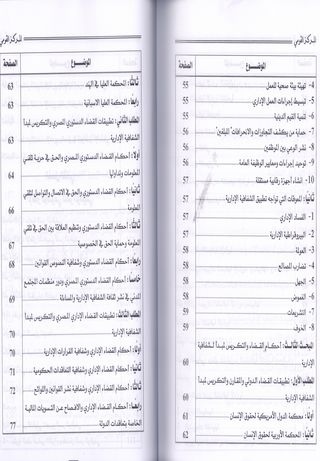 المركز القومي
الموضوع الصفحة
4- تهيئة بيئة صحية للعمل 55
5- تبسيط إجراءات العمل الإداري 55
6- تنمية القيم الدينية 55
7- حماية من يكشف التجاوزات والانحرافات "المبلغين" 55
8- نشر الوعي بين الموظفين 56
9- توحيد إجراءات ومعايير الوظيفة العامة 56
10- انشاء أجهزة رقابية مستقلة 57
ثانياً: المعوقات التي تواجه تطبيق الشفافية الإدارية: 57
1- الفساد الإداري 57
2- البيروقراطية الإدارية 57
3- العولة 58
4- تضارب المصالح 58
5- الجهل 58
6- الغموض 58
7- التشريعات 59
8- الخوف 59
المبحث الثالث: أحكام القضاء والتكريس لمبدأ الشفافية
الإدارية 60
المطلب الأول: تطبيقات القضاء الدولي والمقارن والتكريس لمبدأ
الشفافية الإدارية 60
أولا: محكمة الدول الأمريكية لحقوق الإنسان 61
ثانياً: المحكمة الأوربية لحقوق الإنسان 62
المركز القومي
الموضوع الصفحة
ثالثاً: المحكمة العليا في الهند 63
رابعاً: المحكمة العليا الاسبانية 63
المطلب الثاني: تطبيقات القضاء الدستوري المصري والتكريس لمبدأ
الشفافية الإدارية 63
أولا: أحكام القضاء الدستوري المصري والحق في حرية تلقي
المعلومات وتداولها 64
ثانياً: أحكام القضاء الدستوري والحق في الاتصال والتواصل لتلقي
المعلومة 66
ثالثاً: أحكام القضاء الدستوري وتنظيم العلاقة بين الحق في تلقي
المعلومة وحماية الحق في الخصوصية 67
رابعاً: أحكام القضاء الدستوري وشفافية النصوص القوانين 68
خامساً: أحكام القضاء الدستوري ودور منظمات المجتمع
المدني في نشر ثقافة الشفافية الإدارية والمساءلة 69
المطلب الثالث: تطبيقات القضاء الإداري المصري والتكريس لمبدأ
الشفافية الإدارية 70
أولا: أحكام القضاء الإداري وشفافية القرارات الإدارية 70
ثانياً: أحكام القضاء الإداري وشفافية التعاقدات الحكومية 71
ثالثاً: أحكام القضاء الإداري وشفافية نشر القوانين واللوائح 72
رابعاً: أحكام القضاء الإداري والافصاح عن التسويات المالية
الخاصة بتعاقدات الدولة 77